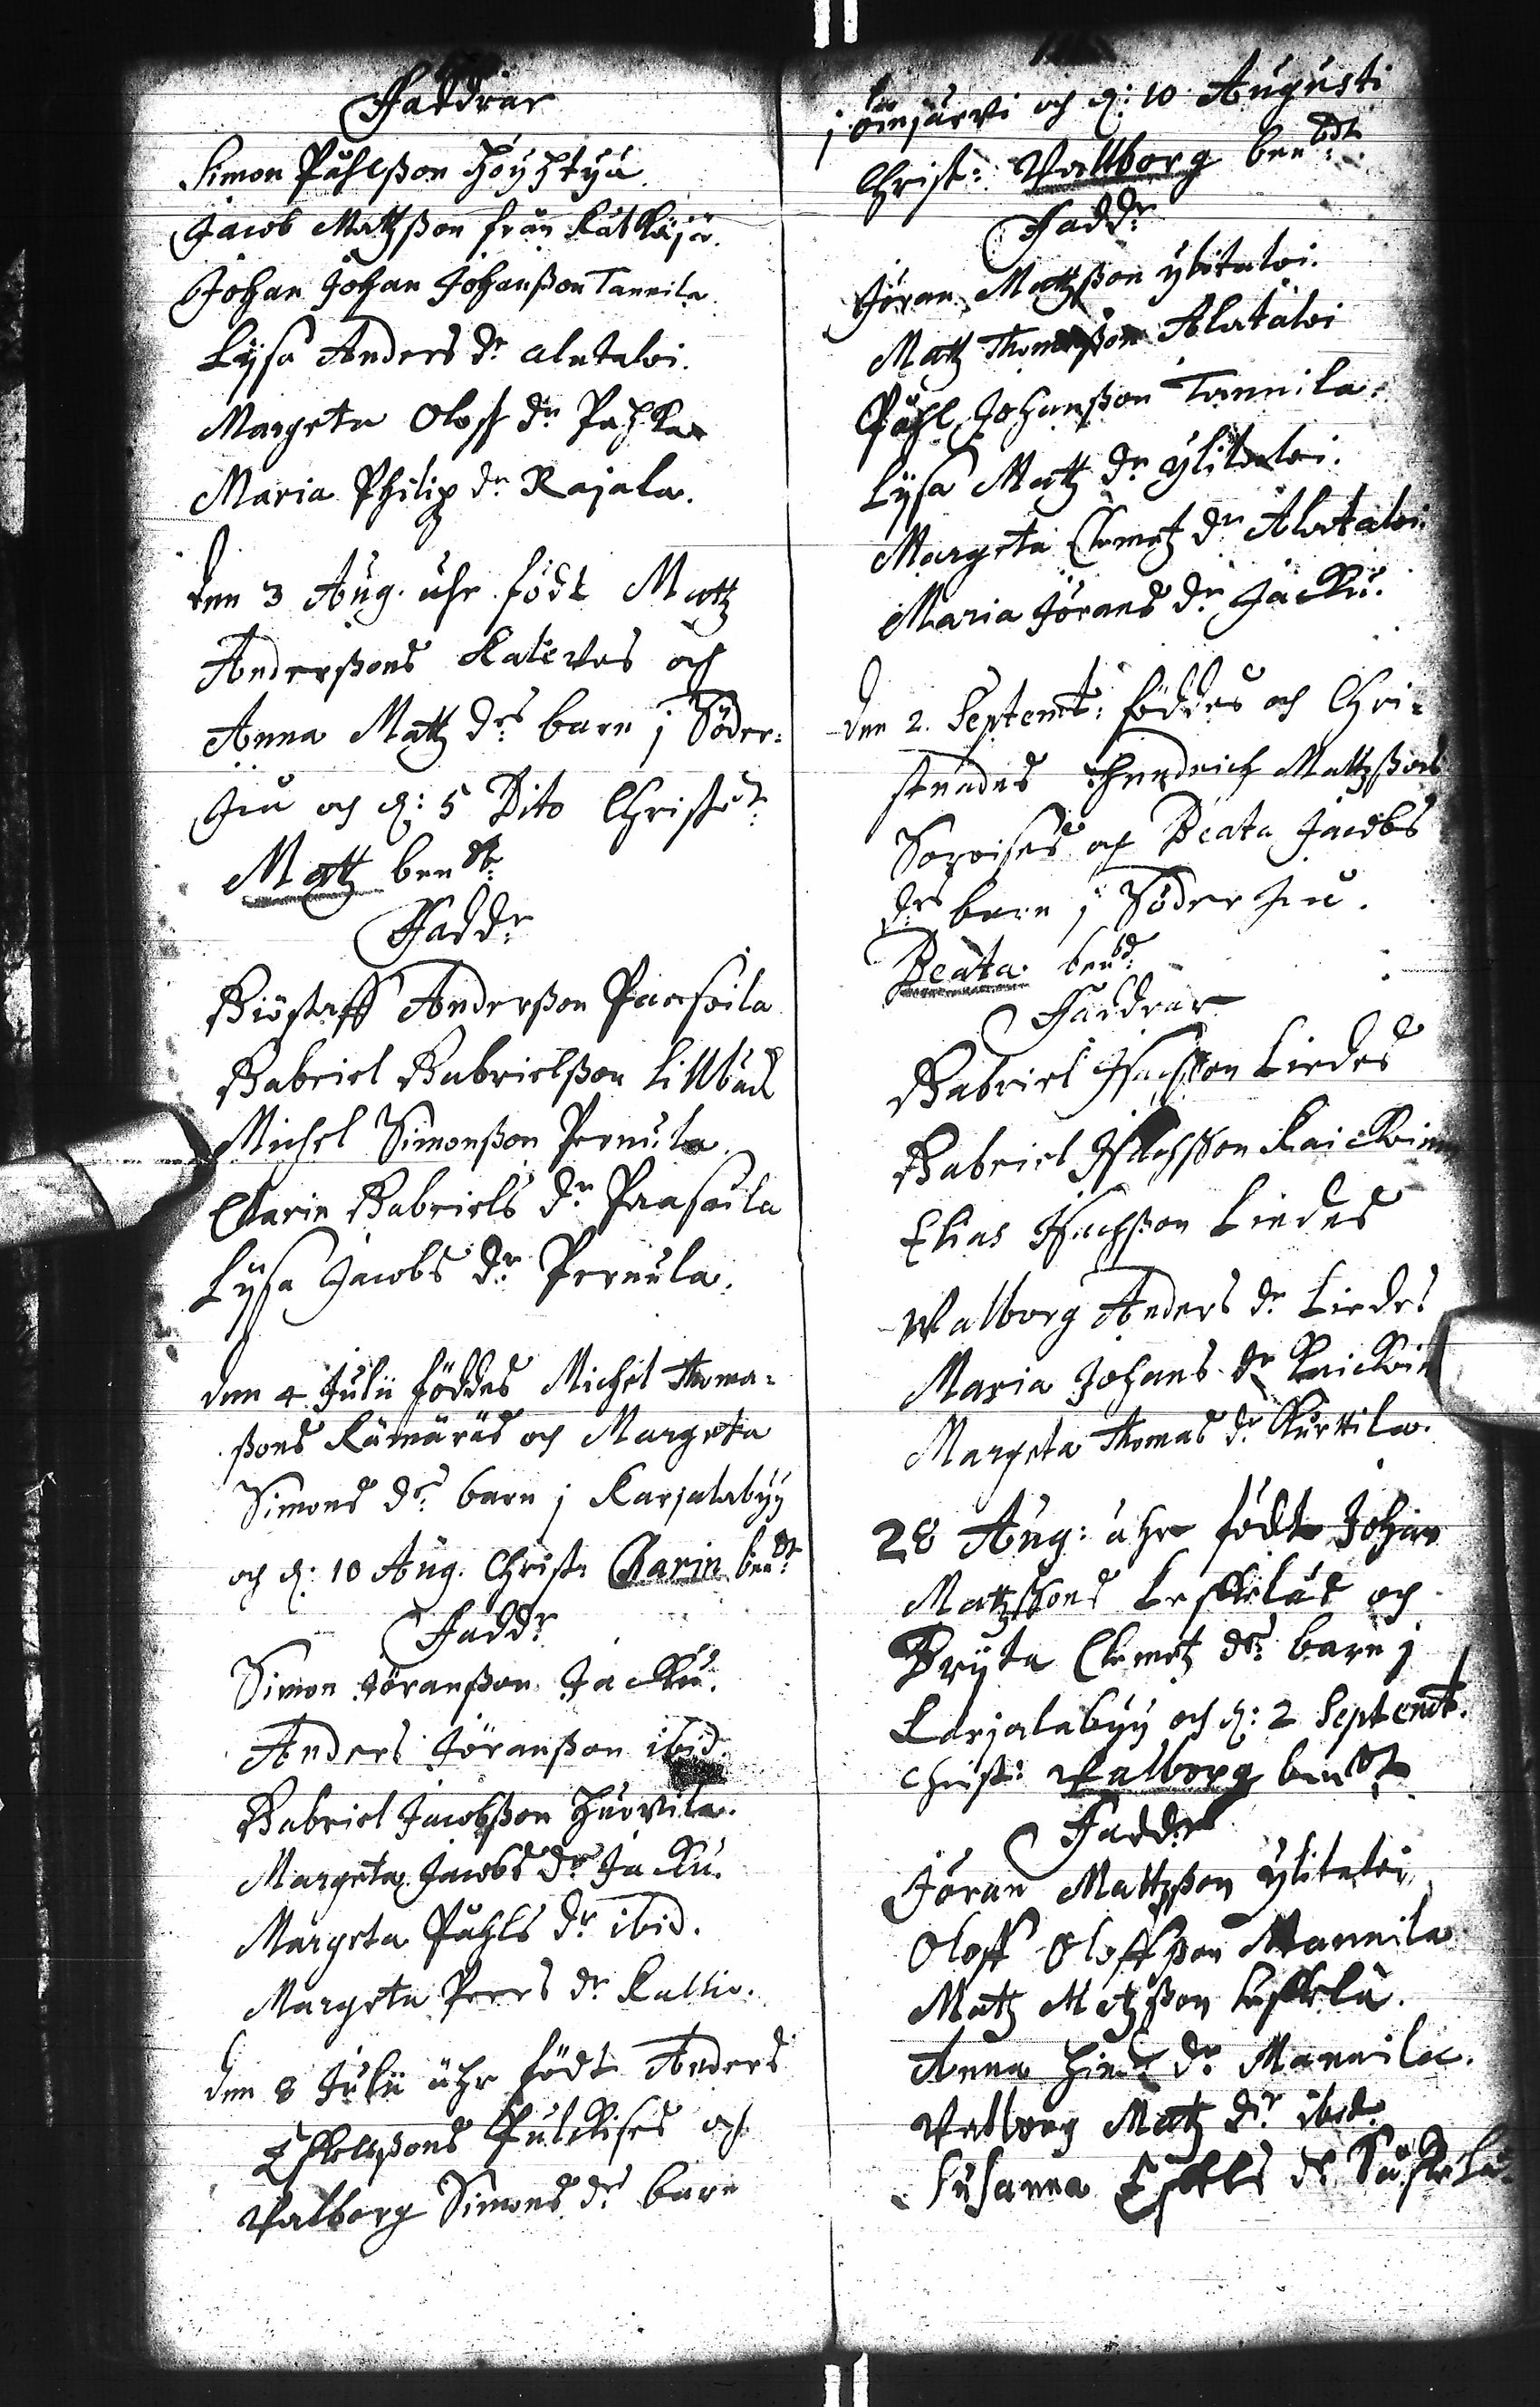 Faddrar
Simon Påhlsson Höyhtyä
Jacob Mattzsson från
Johan Johan Johansson Tannila
Lysa Anders dr alatalvi.
Margeta Oloff dr Pahka
Maria Philip dr Rajala.
den 3 Aug. ähr födt Mattz
Anderssons Katevas och
Anna Mattz drs barn j Söder=
Iiu och d: 5 Dito Christ:
Matz bendt
Faddr
Giöstaff Andersson Paasoila
Gabriel Gabrielsson
Michel Simonsson Pernula
Carin Gabriels dr Paasoila
Lysa Jacobs dr Pernula.
den 4 Julii föddes Michel Thoma=
ssons Kämäräs och Margeta
Simons drs barn j Karjalabyy
och d: 10 Aug. Christ: Carin bendt
Faddr
Simon Jöransson Jacku.
Anders Jöransson ibid.
Gabriel Jacobsson Huovila.
Margeta Jacobs dr Jacku.
Margeta Påhls dr ibid.
Margeta Peers dr Kallio.
den 8 Julii ähr födt Anders
Eskelssons och
Valborg Simons drs barn
j Oinjärvi och d: 10 Augusti
Christ: Vallborg bendt
Faddr
Jöran Mattzsson ylitalvi.
Mattz Thomasson Alatalvi
Påhl Johansson Tannila.
Lysa Mattz dr ylitalvi.
Margeta Clemetz dr Alatalvi.
Maria Jörans dr Jacku.
den 2. Septemb: föddes och Chri=
stnades Hendrich Mattzssons
Soroises och Beata Jacobs
drs barn j Söder Iiu.
Beata bend:
Faddrar
Gabriel Isachsson Liedes
Gabriel Isachsson
Elias Isachsson Liedes
Valborg Anders dr Liedes
Maria Johans dr
Margeta Thomas dr Kurttila.
28 Aug: ähr födt Johan
Matzssons Leskeläs och
Bryta Clemetz drs barn j
Karjalabyy och d: 2 Septemb.
Christ: Valborg bendt
Faddr
Jöran Mattzsson ylitalvi
Oloff Oloffsson Mannila
Matz Matzsson Leskelä.
Anna Hind: dr Mannila.
Valborg Matz dr ibid:
Susanna Eskels dr